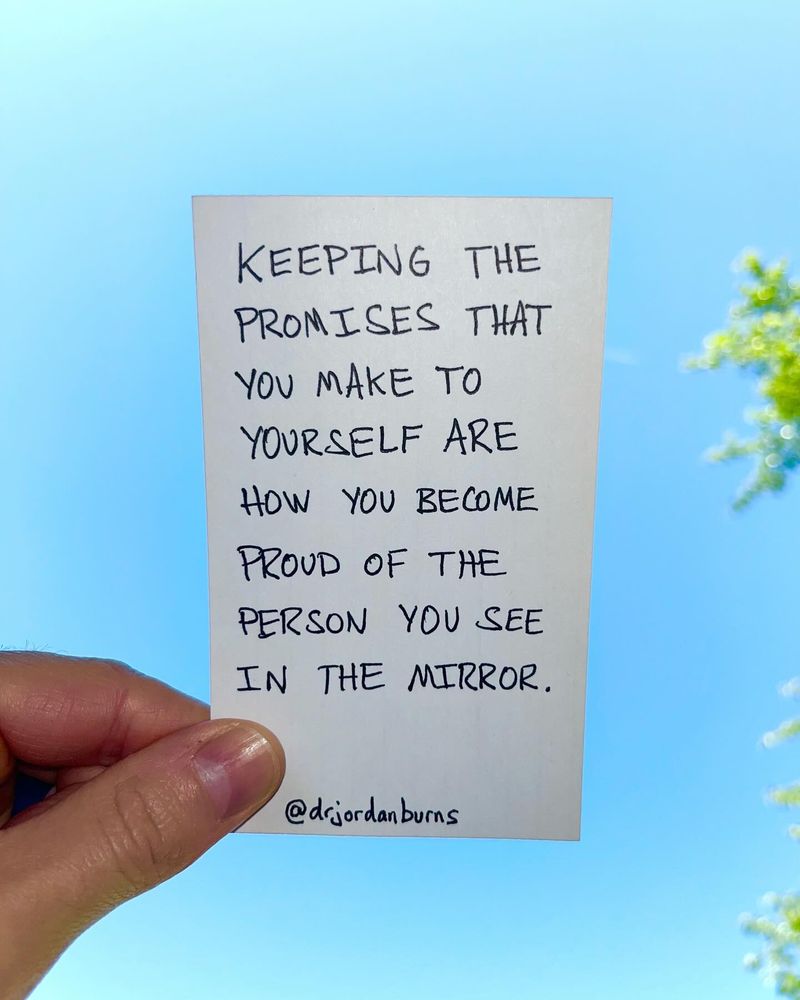 KEEPING THE
PROMISES THAT
YOU MAKE TO
YOURSELF ARE
HOW YOU BECOME
PROUD OF THE
PERSON YOU SEE
IN THE MIRROR.
@drjordanburns